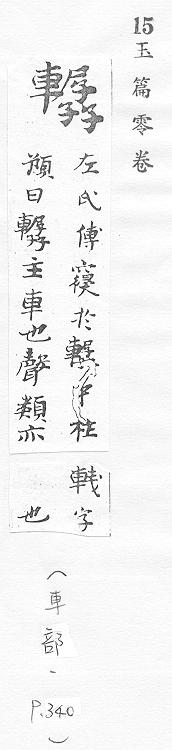 15 玉篇零卷
轏
左氏傳寢於轏中杜
預曰轏主車也聲類亦
輚字
也
(車部、P.340)